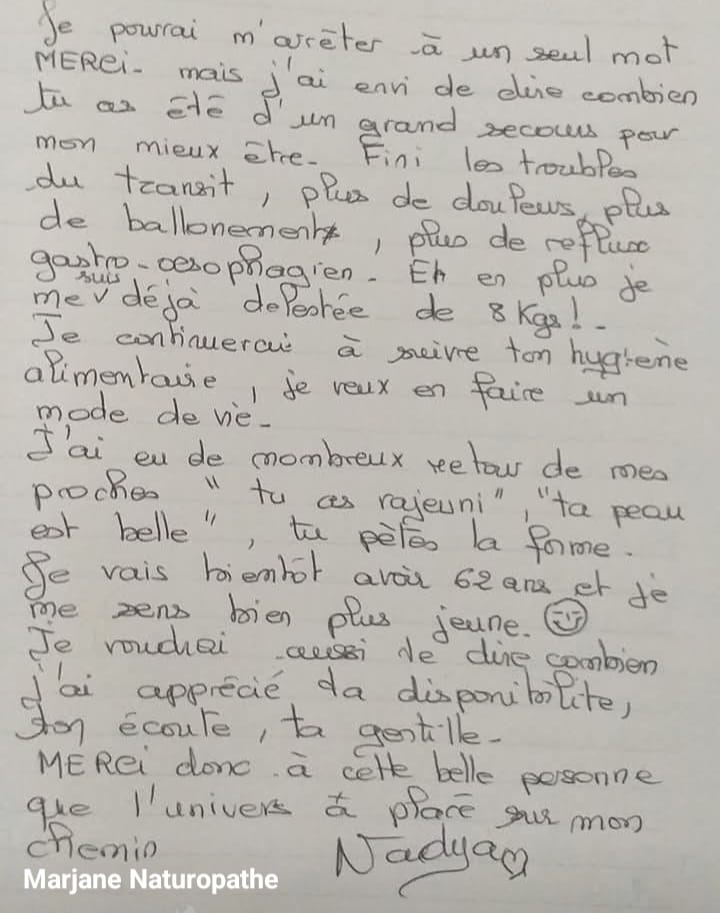 Je pourrai m'arrêter à un seul mot
MERCi- mais j'ai envi de dire combien
tu as été d'un grand secours pour
mon mieux être- Fini les troubles
du transit, plus de douleurs, plus
de ballonement, plus de reflux
gastro-oesophagien- Et en plus je
me suis déjà delestée de 8 Kgs!-
Je continuerai à suivre ton hygiène
alimentaire, je veux en faire un
mode de vie-
J'ai eu de nombreux retour de mes
proches " tu as rajeuni", "ta peau
est belle", tu pètes la forme.
Je vais bientôt avoir 62 ans et je
me sens bien plus jeune. ☺
Je voudrai aussi te dire combien
j'ai apprécié ta disponibilite,
ton écoute, ta gentille-
MERCi donc à cette belle personne
que l'univers à placé sur mon
chemin Nadya♡
Marjane Naturopathe